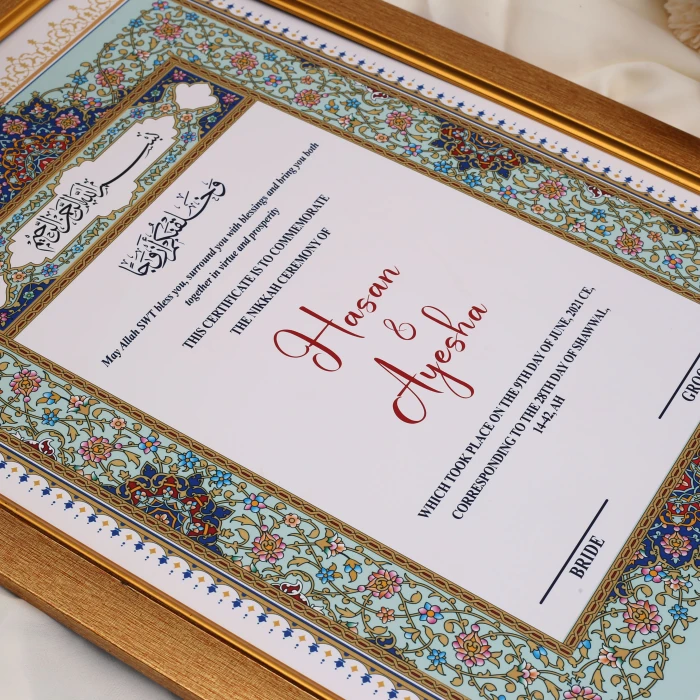 بسم الله الرحمن الرحيم
وخلقناكم أزواجا
May Allah SWT bless you, surround you with blessings and bring you both
together in virtue and prosperity
THIS CERTIFICATE IS TO COMMEMORATE
THE NIKKAH CEREMONY OF
Hasan
&
Ayesha
WHICH TOOK PLACE ON THE 9TH DAY OF JUNE, 2021 CE,
CORRESPONDING TO THE 28TH DAY OF SHAWWAL,
1442, AH
BRIDE